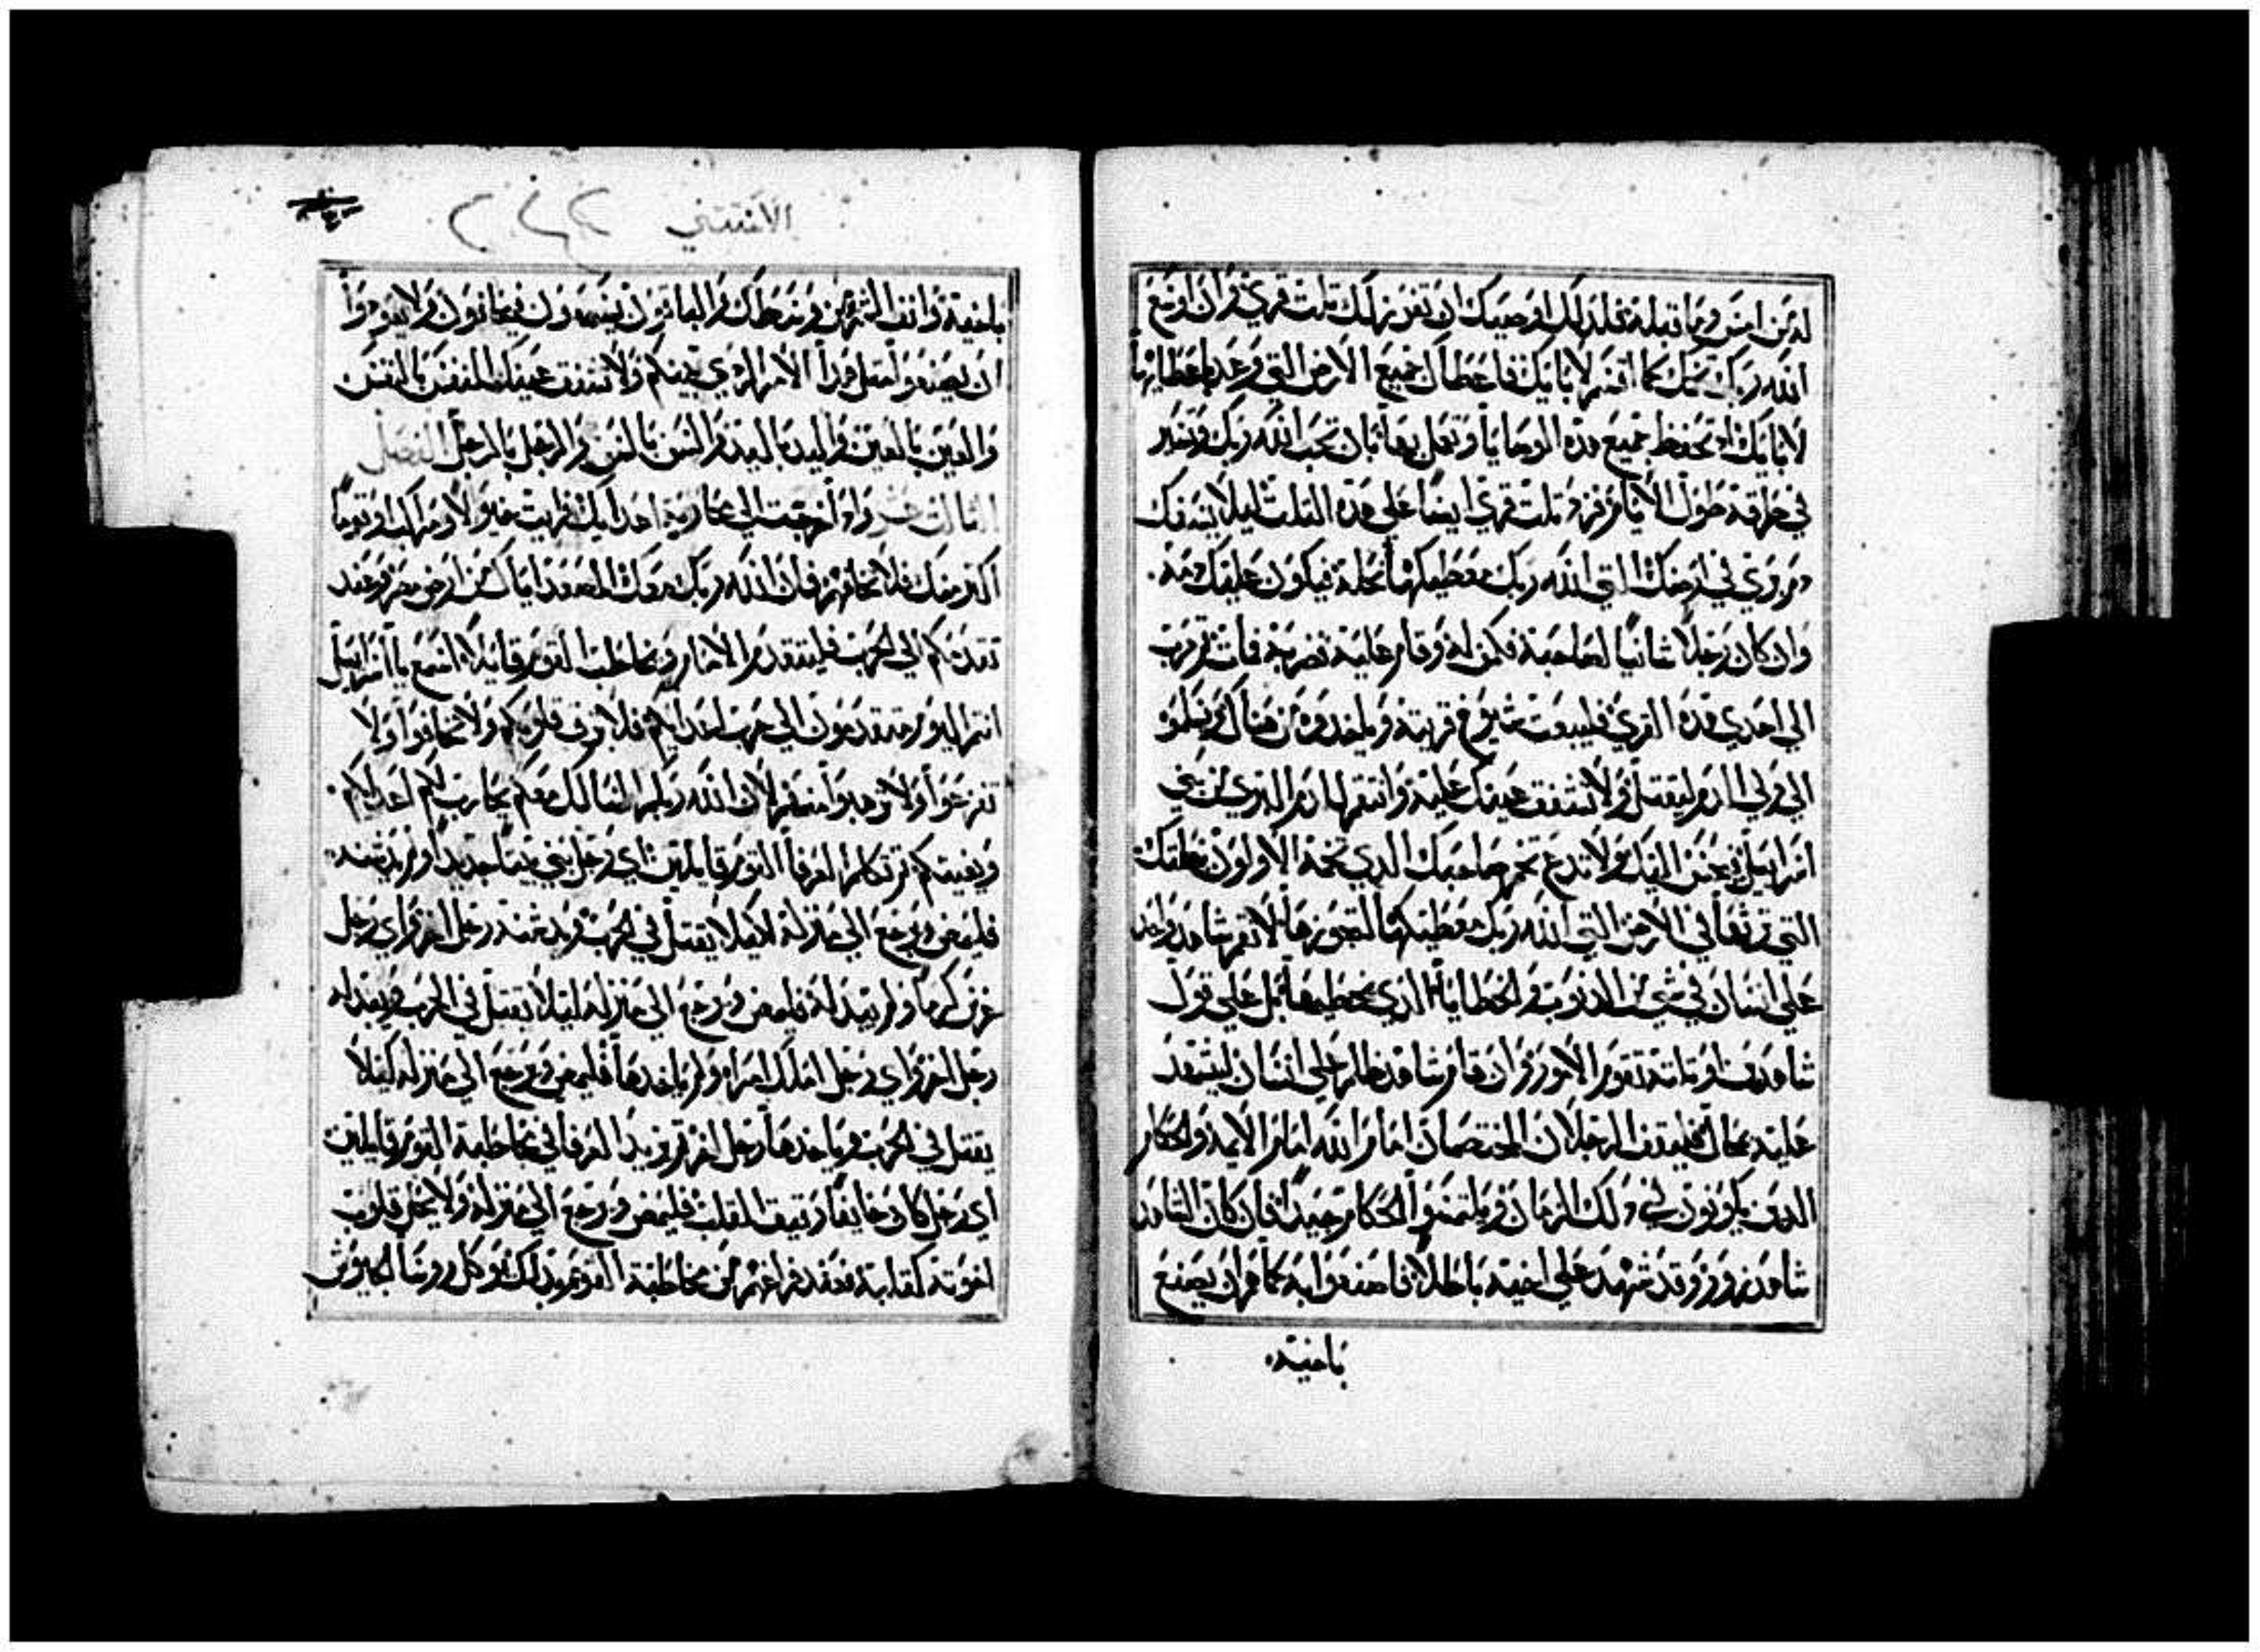 له من امس وما قبله فلذلك اوصيك ان تفرز لك تلت قري وان اوسع
الله ربك تخمك كما اقسم لابايك فاعطاك جميع الارض التي وعد باعطايها
لابايك اذ تحفظ جميع هذه الوصايا وتعمل بها بان تحب الله ربك وتسير
في طرقه طول الايام فزد تلت قري ايضا علي هذه التلت ليلا يسفك
دم بري في ارضك التي الله ربك معطيكها نحلة فيكون عليك دمه
وان كان رجلا شانيا لصاحبه فكمن له وقام عليه فضربه فمات ثم هرب
الي احدي هذه القري فليبعت شيوخ قريته وياخدوه من هناك ويسلموه
الي ولي الدم ليقتل ولا تشفق عينك عليه وانتقم الدم البري من بني
اسراييل فيحسن اليك ولا تدع تخم صاحبك الدي تخمه الاولون نحلتك
التي ترثها في الارض التي الله ربك معطيكها لتحوزها لا يقم شاهد واحد
علي انسان في شي من الدنوب والخطايا الذي يخطيها بل علي قول
شاهدين او ثلثة تقوم الامور وان قام شاهد ظالم علي انسان ليشهد
عليه بمحال فليقف الرجلان المختصمان امام الله امام الايمة والحكام
الدين يكونون في دلك الزمان ويلتمسوا الحكام جيدا فان كان الشاهد
شاهد زور وقد شهد علي اخيه باطلا فاصنعوا به كما هم ان يصنع
باخيه
الاستثني
باخيه وانف الشر من وسطك والباقون يسمعون فيخافون ولا يعودوا
ان يصنعوا مثل هدا الامر الردي بينكم ولا تشفق عينك النفس بالنفس
والعين بالعين واليد باليد والسن بالسن والرجل بالرجل الفصل
وادا خرجت الي محاربة اعدايك فرايت خيولا ومراكب وقوما
اكتر منك فلا تخافهم فان الله ربك معك المصعد اياك من ارض مصر وعند
تقدمكم الي الحرب فليتقدم الامام ويخاطب القوم قايلا اسمع يا اسراييل
انتم اليوم متقدمون الي حرب اعدايكم فلا ترق قلوبكم ولا تخافوا ولا
تفزعوا ولا ترهبوا منهم لان الله ربكم السالك معكم يحارب لكم اعدايكم
ويغيتكم ثم تكلم العرفا القوم قايلين اي رجل بني بيتا جديدا ولم يدشنه
فليمض ويرجع الي منزله لكيلا يقتل في الحرب ويدشنه رجل اخر واي رجل
غرس كرما ولم يبدله فليمض ويرجع الي منزله ليلا يقتل في الحرب ويبدله
رجل اخر واي رجل املك امراه ولم ياخدها فليمض ويرجع الي منزله لكيلا
يقتل في الحرب وياخدها رجل اخر تم يزيد العرفا في مخاطبة القوم قايلين
اي رجل كان خايفا رقيق القلب فليمض ويرجع الي منزله ولا يحل قلوب
اخوته كقلبه فعند فراغهم من مخاطبة القوم بدلك يوكل روسا الجيوش